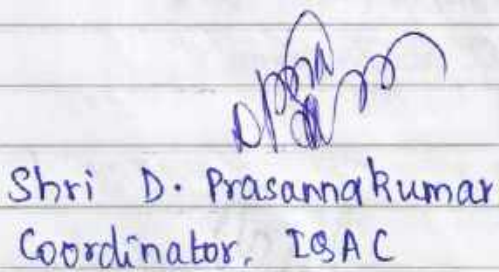 Shri D. Prasannakumar
Coordinator, IQAC